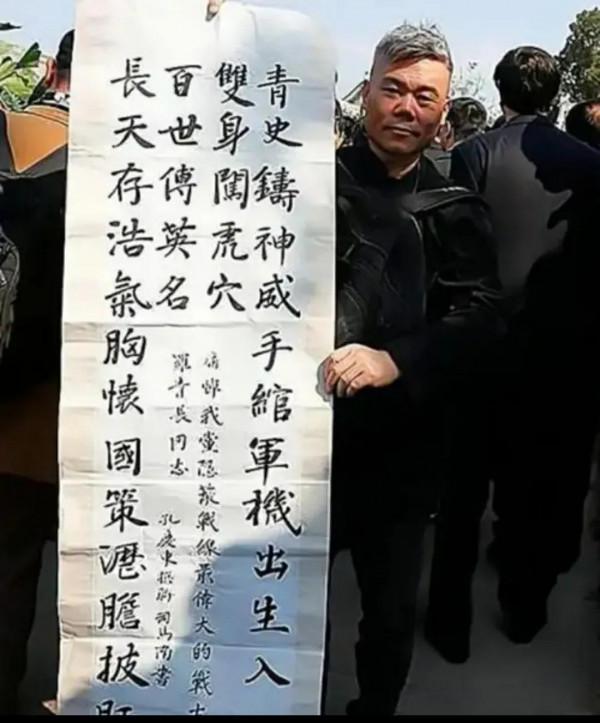 青史鑄神威手綰軍機出生入
雙身闖虎穴
痛悼我黨隐蔽戰線最偉大的戰
百世傳英名
羅青長同志
孔慶東撰聯 司馬南書
長天存浩氣胸懷國策瀝膽披